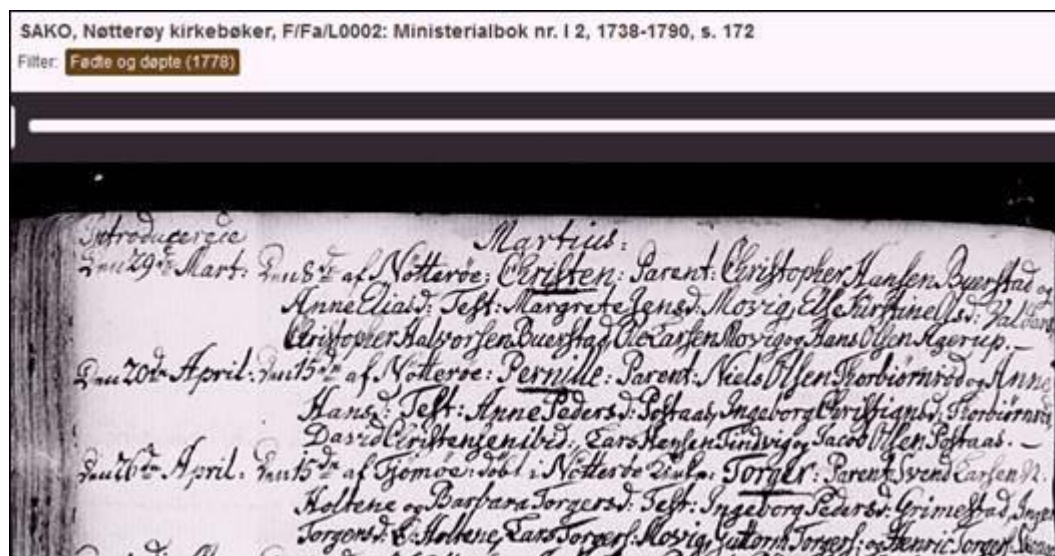 SAKO, Nøtterøy kirkebøker, F/Fa/L0002: Ministerialbok nr. I 2, 1738-1790, s. 172
Filter: Fødte og døpte (1778)
Introducerede Martius:
Den 29de Mart: Den 8de af Nötterøe: Christen: Parent: Christopher Hansen Buerstad og
Anne Eliasd: Test: Margrete Jensd: Movig, Else Fürstine Olsd:
Christopher Halvorsen Buerstad, Ole Larsen Movig og Hans Olsen Agerup.-
Den 20de April: Den 15de af Nötterøe: Pernille: Parent: Niels Olsen Thorbiørnrød og Anne
Hansd: Test: Anne Pedersd: Postaas, Ingeborg Christiansd: Thorbiørnrød
David Christensen ibid: Lars Hansen Tindvig og Jacob Olsen Postaas.-
Den 26de April: Den 15de af Tjømøe: döbt i Nötterøe Kirke: Torger: Parent: Svend Larsen N.
Holtene og Barbara Torgersd: Test: Ingeborg Pedersd: Grimestad,
Torgersd: Holtene, Lars Torgers: Movig, Guttorm Torgers: og Henric Torgers: